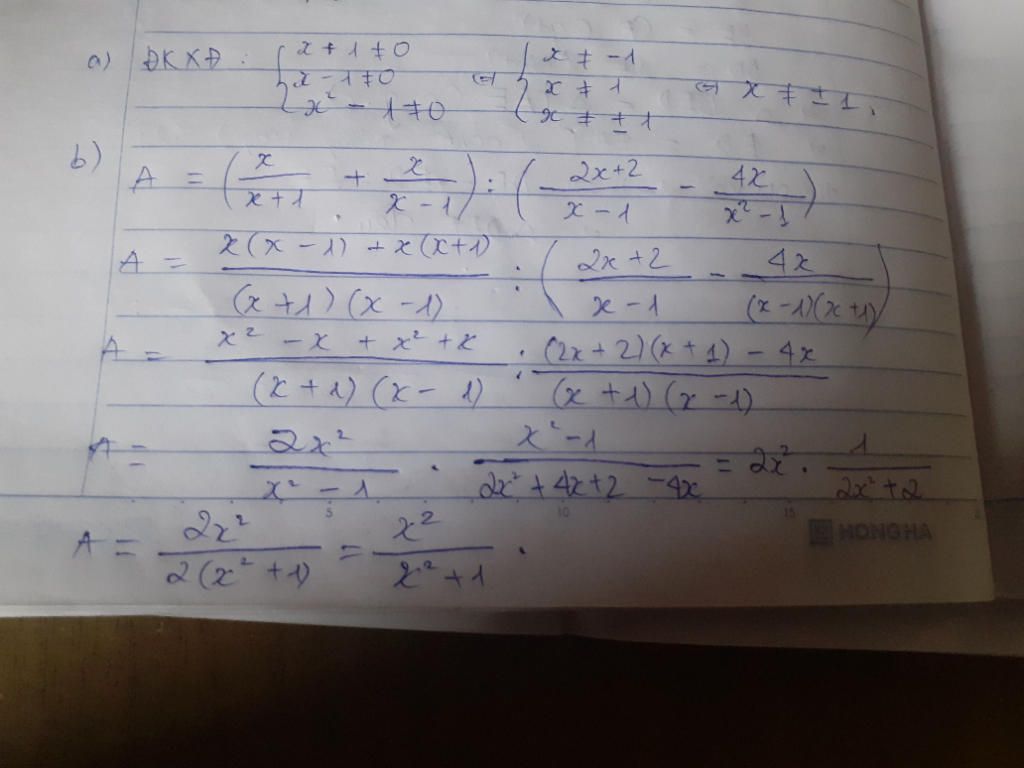 a) ĐKXĐ : { x + 1 ≠ 0 ⇔ { x ≠ -1
x - 1 ≠ 0 x ≠ 1 ⇔ x ≠ ± 1.
x² - 1 ≠ 0 x ≠ ± 1
b) A = (x/(x+1) + x/(x-1)) : ((2x+2)/(x-1) - 4x/(x²-1))
A = (x(x-1) + x(x+1))/((x+1)(x-1)) : ((2x+2)/(x-1) - 4x/((x-1)(x+1)))
A = (x² - x + x² + x)/((x+1)(x-1)) : ((2x+2)(x+1) - 4x)/((x+1)(x-1))
A = 2x²/(x²-1) . (x²-1)/(2x²+4x+2-4x) = 2x² . 1/(2x²+2)
5 10 15
HONG HA
A = 2x²/(2(x²+1)) = x²/(x²+1) .